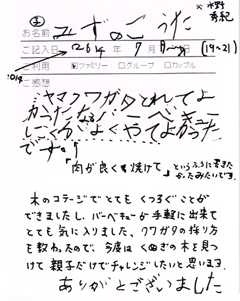 水野
秀紀
お名前 みずのこうた
ご記入日 2014年 9月 (19~21)
ご利用 ファミリー □グループ □カップル
2014
ご感想
ヤマクワガタとれてよ
かったな バーベキュー
にくがよくやてよかった
です。
「肉が良く焼けて」というふうに書きた
かったみたいです。
木のコテージでとてもくつろぐことが
できましたし、バーベキューが手軽に出来て
とても気に入りました。クワガタの採り方
も教わったので、今度はくぬぎの木を見つ
けて親子だけでチャレンジしたいと思います。
ありがとございました